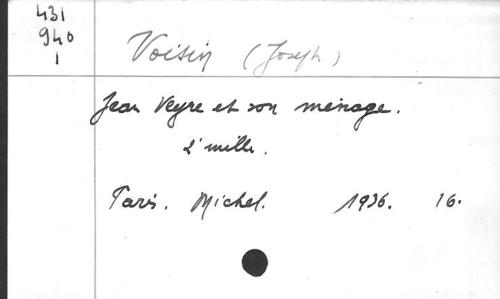 431
940
1
Voisin (Joseph)
Jean Veyre et son ménage.
2e mille.
Paris. Michel. 1936. 16.